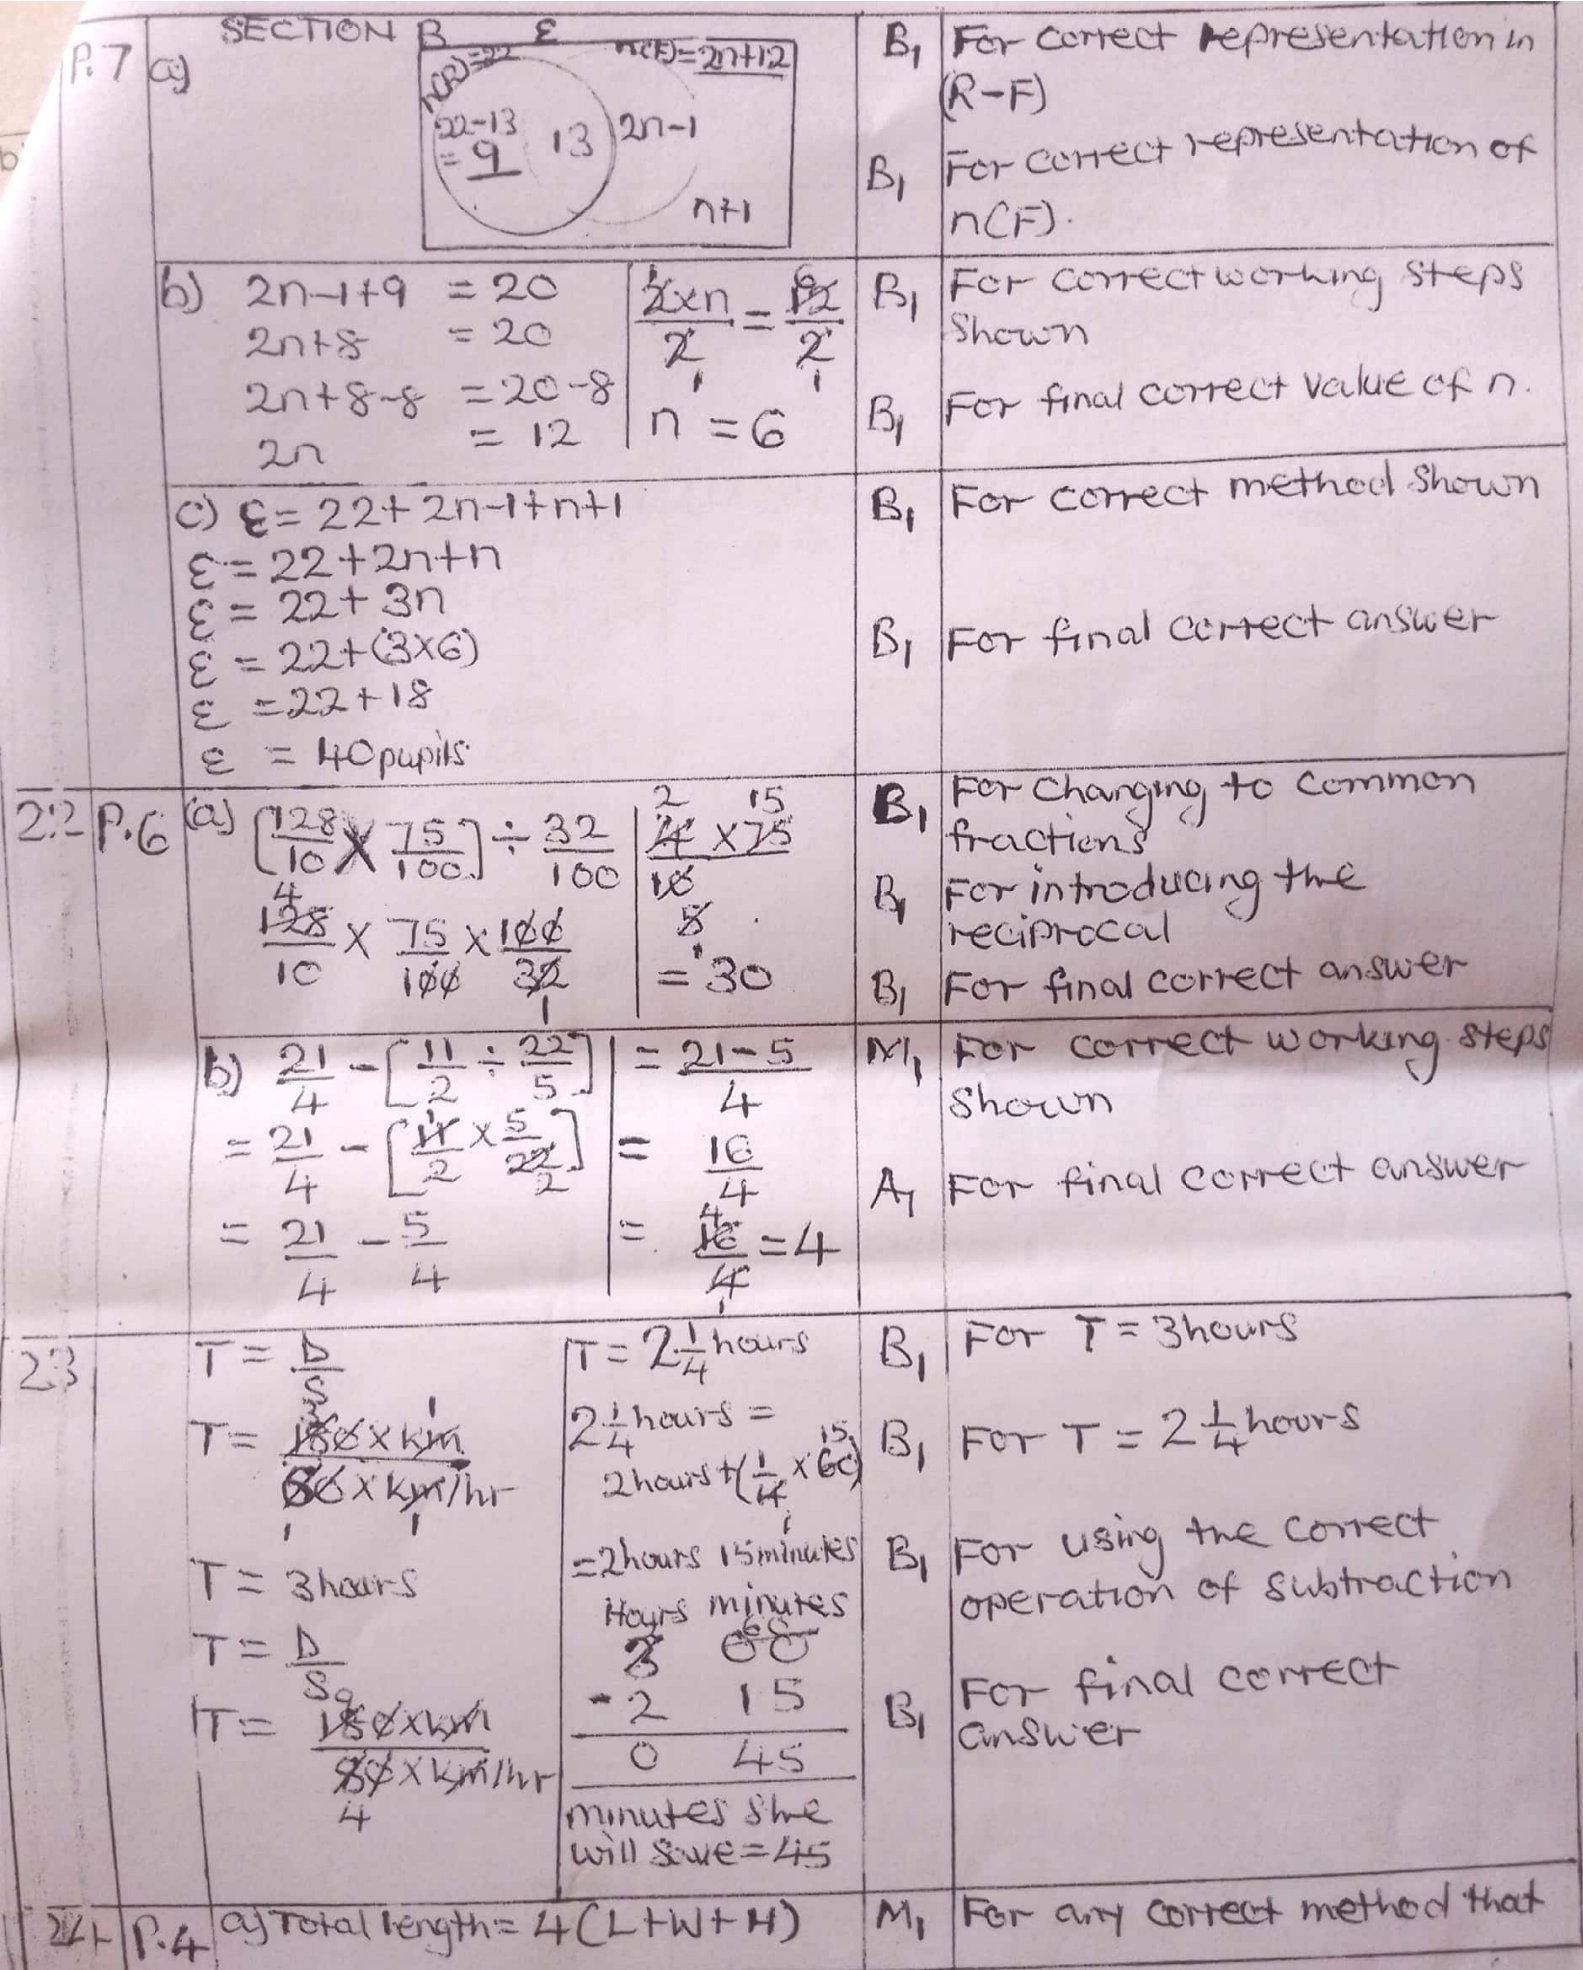 SECTION B
P.7 a)
ε
n(R)=22
n(F)=2n+12
22-13
= 9
13
2n-1
n+1
B1 For correct representation in
(R-F)
B1 For correct representation of
n(F).
b) 2n-1+9 = 20
2n+8 = 20
2n+8-8 = 20-8
2n = 12
2×n/2 = 12/2
1 6
1 1
n = 6
B1 For correct working steps
shown
B1 For final correct value of n.
c) ε = 22+2n-1+n+1
ε = 22+2n+n
ε = 22+3n
ε = 22+(3×6)
ε = 22+18
ε = 40pupils
B1 For correct method shown
B1 For final correct answer
22 P.6 (a) [128/10 × 75/100] ÷ 32/100
4
128/10 × 75/100 × 100/32
1
2 15
4 × 75
10
5
1
= 30
B1 For changing to common
fractions
B1 For introducing the
reciprocal
B1 For final correct answer
b) 21/4 - [11/2 ÷ 22/5]
= 21/4 - [11/2 × 5/22]
1
2
= 21/4 - 5/4
= 21-5/4
= 16/4
4
= 16/4 = 4
1
M1 For correct working steps
shown
A1 For final correct answer
23 T = D/S
3 1
T = 180×km
60×km/hr
1 1
T = 3hours
T = D/S
9
T = 180×km
80×km/hr
4
T = 2 1/4 hours
2 1/4 hours =
15
2hours+(1/4 ×60)
1
=2hours 15minutes
Hours minutes
60
3 00
-2 15
0 45
minutes she
will save=45
B1 For T = 3hours
B1 For T = 2 1/4 hours
B1 For using the correct
operation of subtraction
B1 For final correct
answer
24 P.4 a) Total length = 4(L+W+H)
M1 For any correct method that